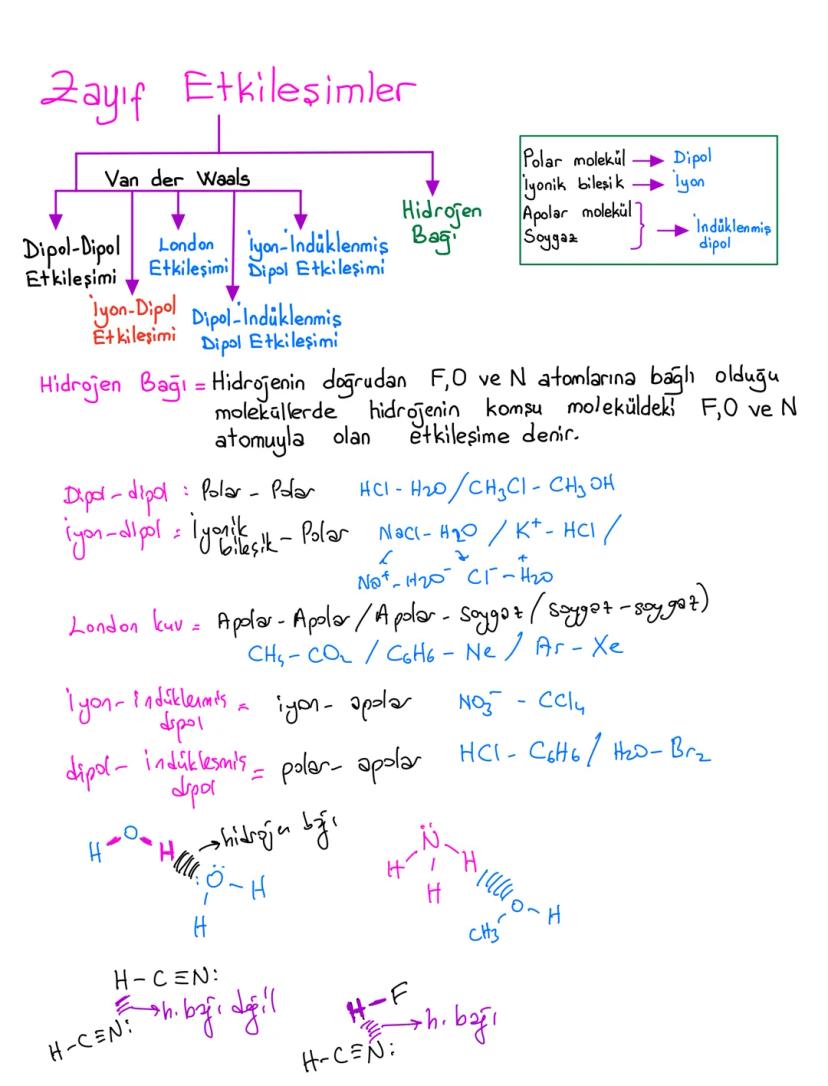 Zayıf Etkileşimler
Van der Waals
Hidrojen
Bağı
Dipol-Dipol
Etkileşimi
London
Etkileşimi
İyon-İndüklenmiş
Dipol Etkileşimi
İyon-Dipol
Etkileşimi
Dipol-İndüklenmiş
Dipol Etkileşimi
Polar molekül → Dipol
İyonik bileşik → İyon
Apolar molekül
Soygaz
→ İndüklenmiş
dipol
Hidrojen Bağı = Hidrojenin doğrudan F,O ve N atomlarına bağlı olduğu
moleküllerde hidrojenin komşu moleküldeki F,O ve N
atomuyla olan etkileşime denir.
Dipol-dipol : Polar - Polar HCl - H2O / CH3Cl - CH3OH
iyon-dipol = İyonik bileşik - Polar NaCl - H2O / K+ - HCl /
Na+ - H2O- Cl- - +H2O
London kuv = Apolar - Apolar / Apolar - soygaz / soygaz - soygaz)
CH4 - CO2 / C6H6 - Ne / Ar - Xe
İyon-indüklenmiş dipol = iyon - apolar NO3- - CCl4
dipol- indükleşmiş dipol = polar - apolar HCl - C6H6 / H2O - Br2
H - O - H → hidrojen bağı
:Ö - H
H
N̈
H H
H
O - H
CH3
H - C ≡ N:
→ h. bağı değil
H-C≡N:
H - F
→ h. bağı
H-C≡N: